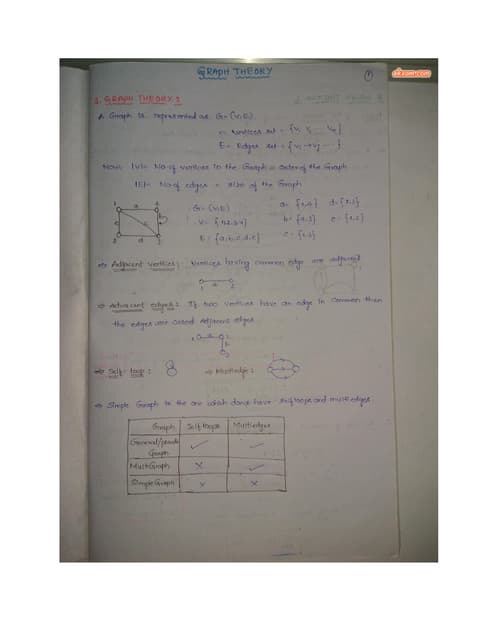 GRAPH THEORY
1
1. GRAPH THEORY:
A Graph is represented as G=(V,E)
V= Vertices set = {V1 V2 ... Vn}
E= Edges set = {Vi → Vj ...}
Now |V|= No. of vertices in the Graph = order of the Graph
|E|= No. of edges = size of the Graph
G=(V,E)
V= {1,2,3,4}
E= {a,b,c,d,e}
⇒ Adjacent vertices: Vertices having common edge are adjacent
⇒ Adjacent edges: If two vertices have an edge in common then
the edges are called Adjacent edges
⇒ Self-loop: ⇒ Multiedge:
⇒ Simple Graph is the one which dont have self loops and multi edges
Graph Self loops Multi edges
General/pseudo Graph ✓ ✓
Multi Graph X ✓
Simple Graph X X